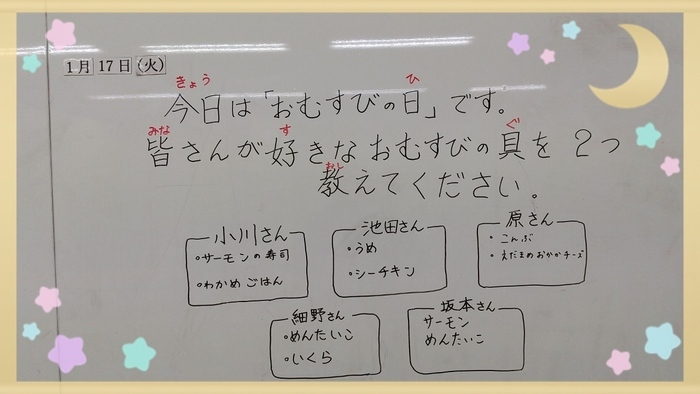 1月17日(火)
きょう ひ
今日は「おむすびの日」です。
みな す ぐ
皆さんが好きなおむすびの具を2つ
おし
教えてください。
小川さん
・サーモンの寿司
・わかめごはん
池田さん
・うめ
・シーチキン
原さん
・こんぶ
・えだまめおかかチーズ
細野さん
・めんたいこ
・いくら
坂本さん
サーモン
めんたいこ